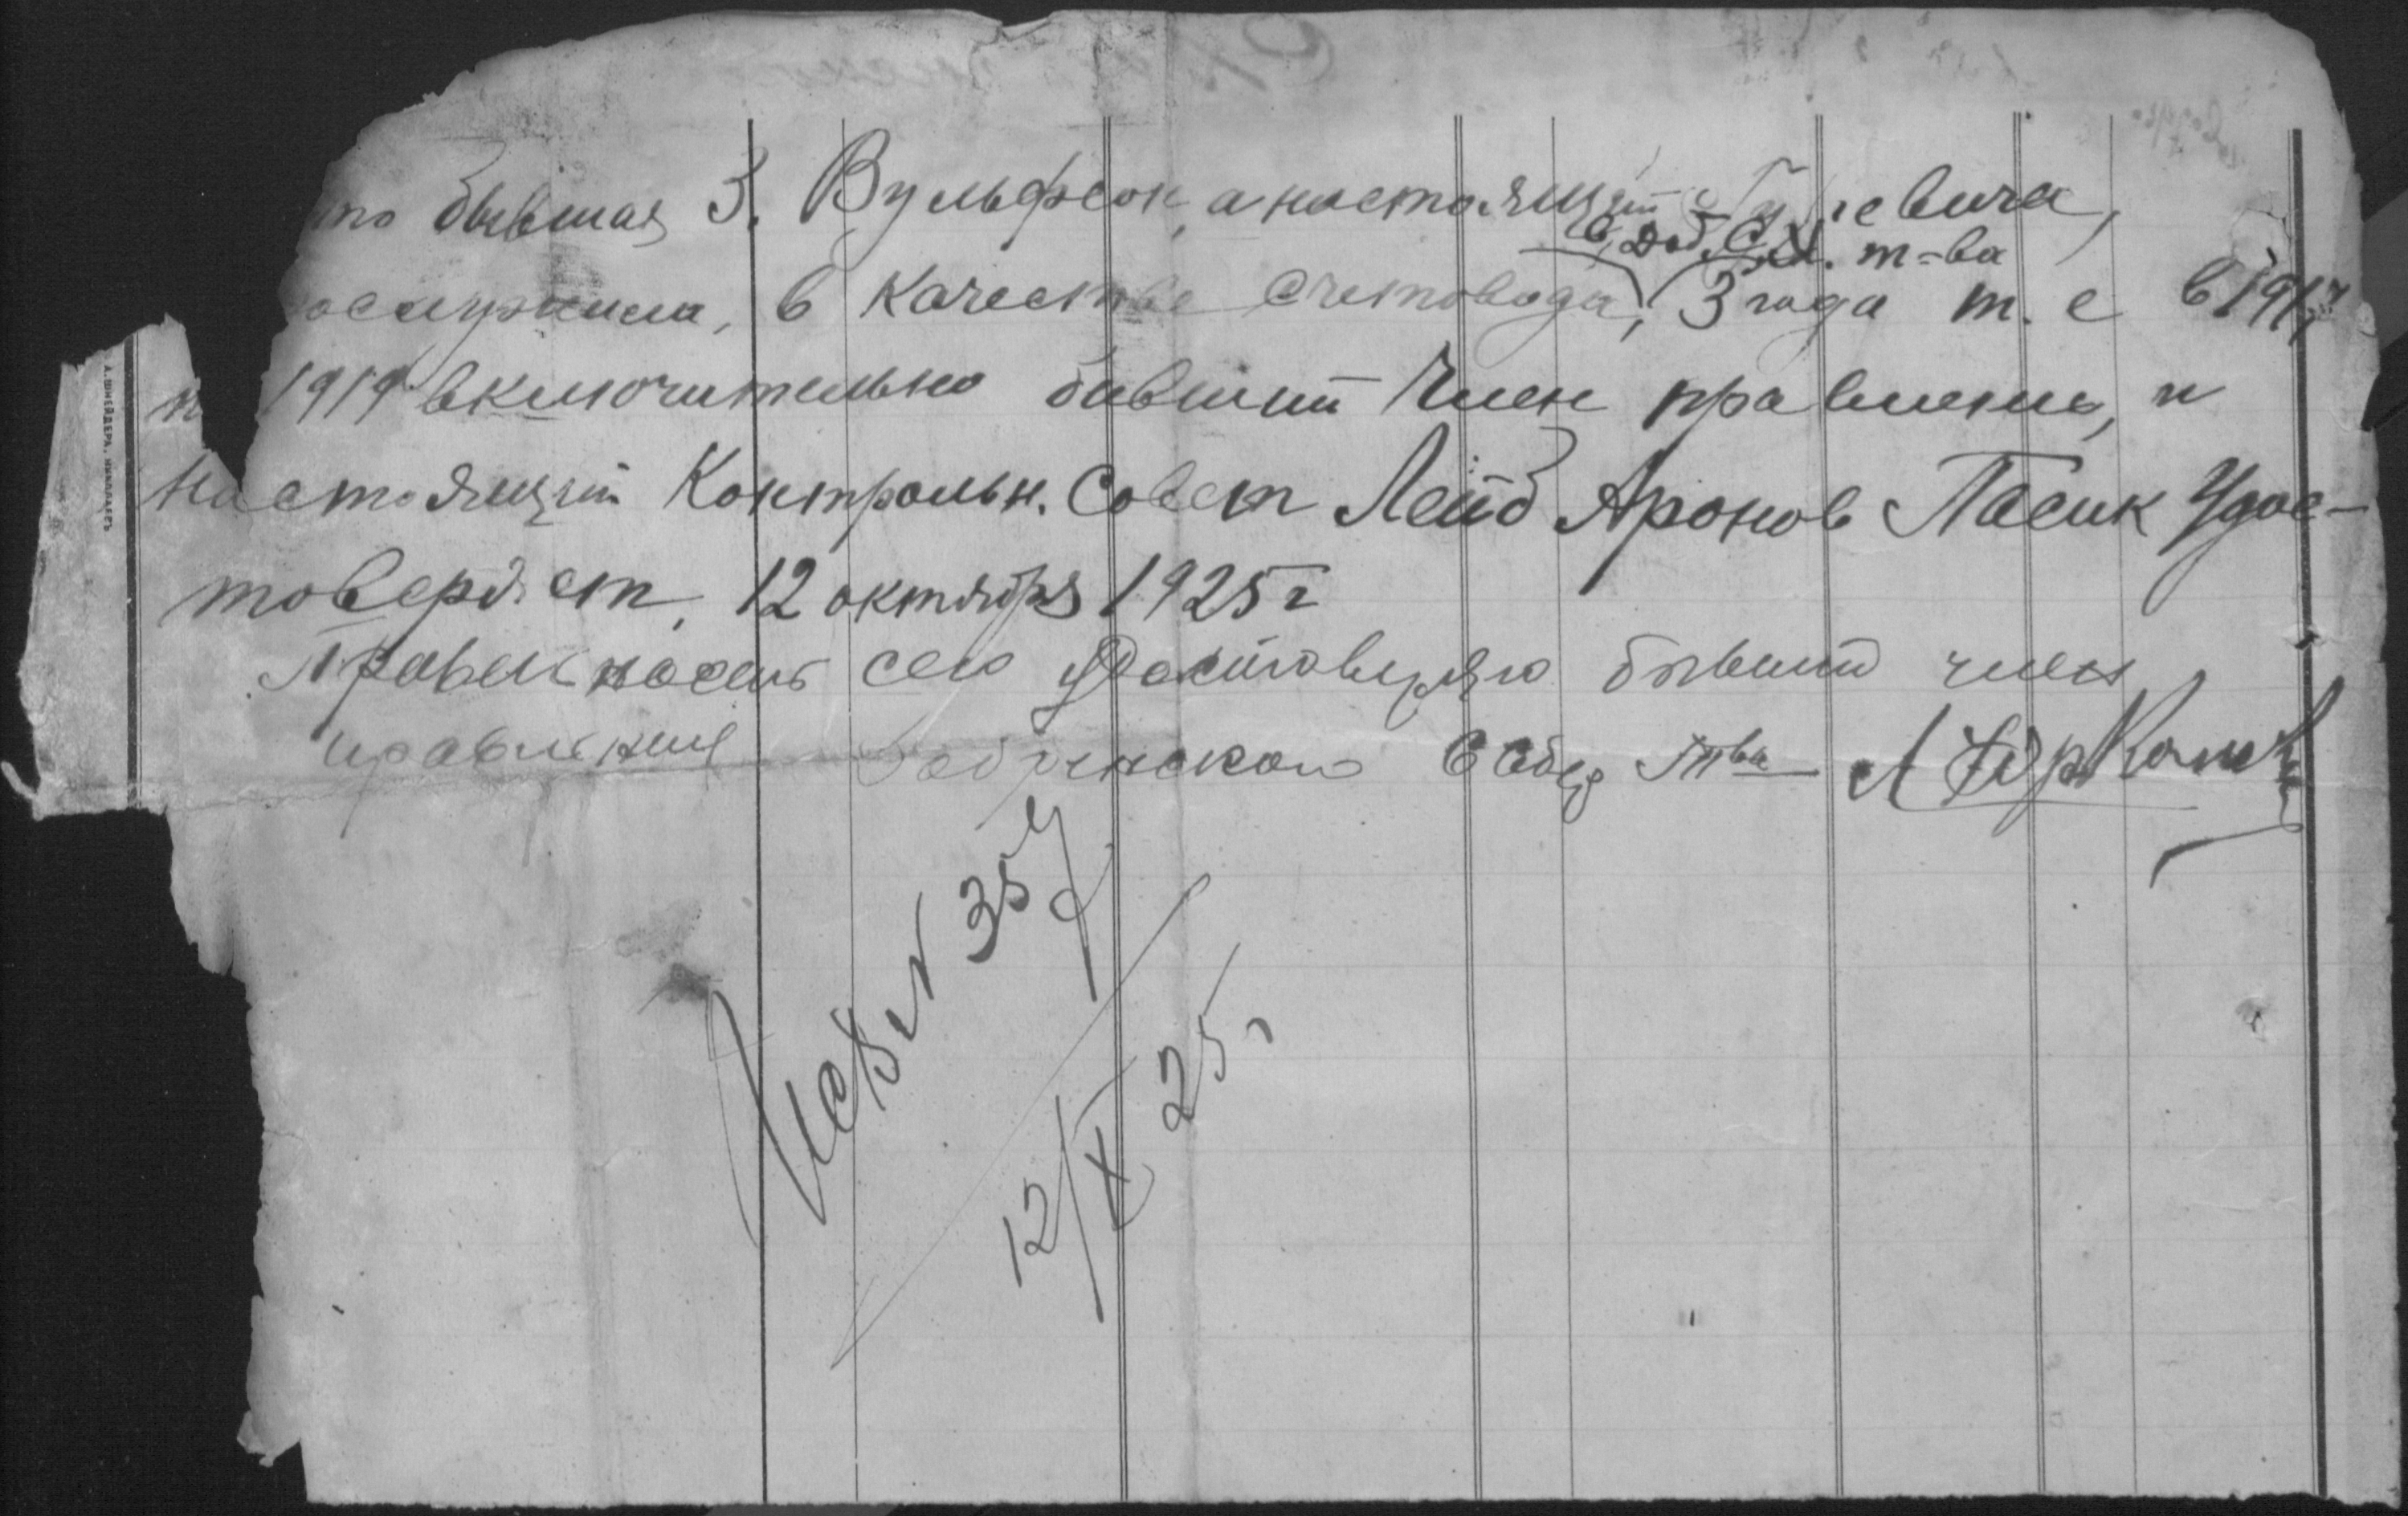 что бывшая З. Вульфсон, а настоящий Гуревича,
в Доб. С.Х. т-ва
послужила, в качестве счетовода, 3 года т. е в 1917
и 1919 включительно бывший Член правления, и
настоящий Контрольн. Совет Лейб Аронов Пасик Удос-
товеряет, 12 октября 1925 г
Правильность сего удостоверяю бывший член
правления Добринского ССбер Тва
№ 357
12/X 25
А. ШНЕЙДЕРА, НИКОЛАЕВЪ